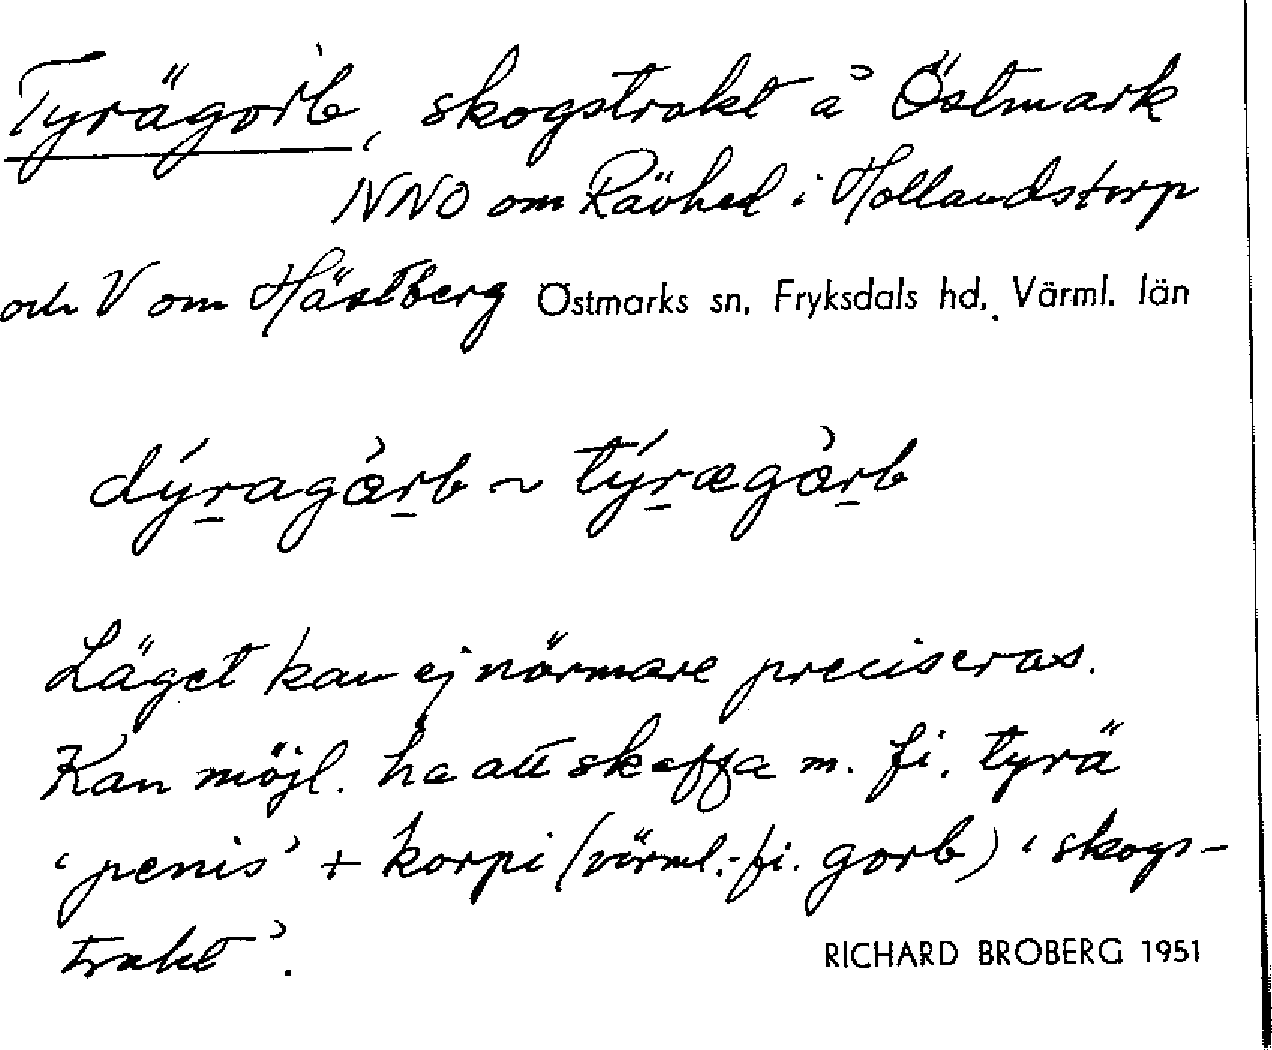 Tyrägorb, skogstrakt å Östmark
NNO om Rävhed i Hollandstorp
och V om Hästberg Östmarks sn, Fryksdals hd, Värml. län
dýragàrb ~ týrægàrb
Läget kan ej närmare preciseras.
Kan möjl. ha att skaffa m. fi. tyrä
'penis' + korpi (värml.-fi. gorb) 'skogs-
trakt'.
RICHARD BROBERG 1951